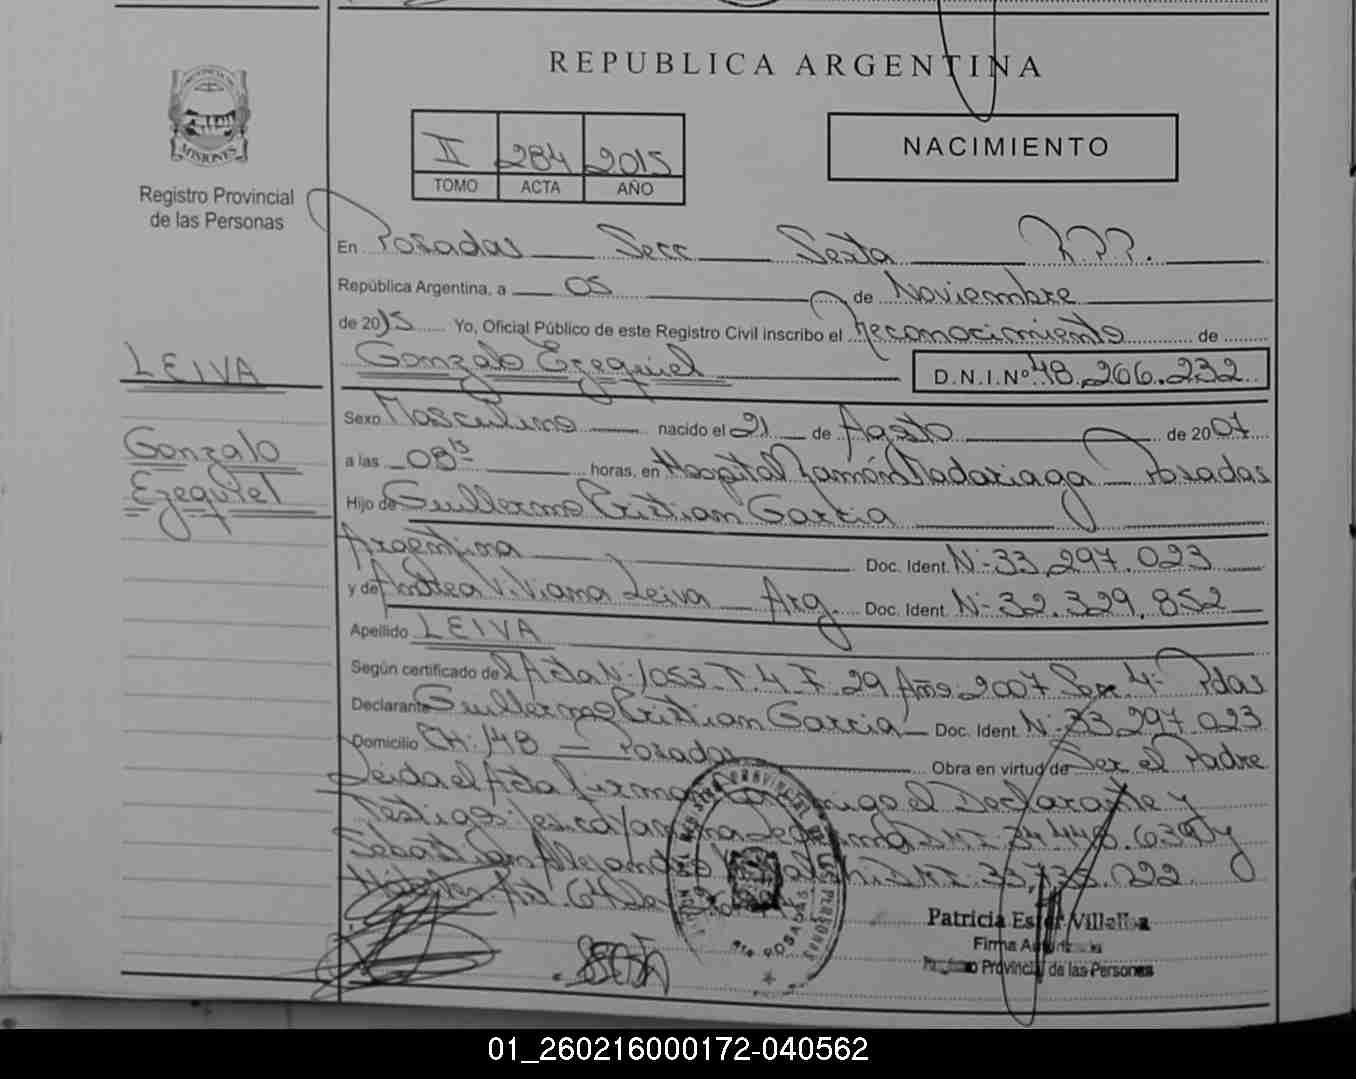 REPUBLICA ARGENTINA
MISIONES
Registro Provincial
de las Personas
II 284 2015
TOMO ACTA AÑO
NACIMIENTO
En Posadas Secc Sexta R.P.P.
República Argentina, a 05 de Noviembre
de 2015 Yo, Oficial Público de este Registro Civil inscribo el Reconocimiento de
Gonzalo Ezequiel D.N.I.Nº 48.266.232
LEIVA
Gonzalo
Ezequiel
Sexo Masculino nacido el 21 de Agosto de 2007
a las 08 15 horas, en Hospital Ramón Madariaga Posadas
Hijo de Guillermo Cristian Garcia
Argentina Doc. Ident. Nº 33.297.023
y de Andrea Viviana Leiva Arg. Doc. Ident. Nº 32.329.852
Apellido LEIVA
Según certificado del Acta Nº 1053 T. 4 F. 29 Año 2007 Secc 4º Pdas
Declarante Guillermo Cristian Garcia Doc. Ident. Nº 33.297.023
Domicilio CH: 148 Posadas Obra en virtud de Ser el Padre
Leida el Acta firma conmigo el Declarante y
Testigos: DNI 34.448.639 y
Sebastian Alejandro DNI 33.735.022
Patricia Ester Villalba
Firma Autorizada
Registro Provincial de las Personas
01_260216000172-040562